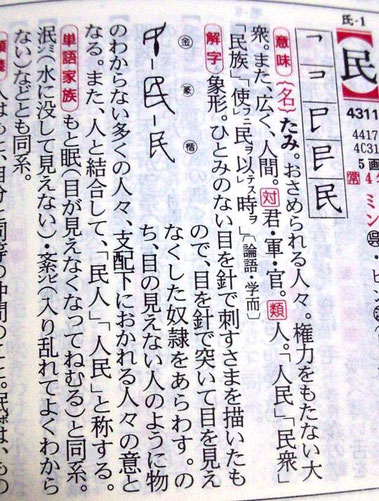 氏-1
【民】
4311
4417
4C31
5画
常
4
ミン
呉
意味
(名)たみ。おさめられる人々。権力をもたない大
衆。また、広く、人間。対君・軍・官。類人。「人民」「民衆」
「民族」「使レ民以レ時」〔論語・学而〕
解字 象形。ひとみのない目を針で刺すさまを描いたも
ので、目を針で突いて目を見え
なくした奴隷をあらわす。の
ち、目の見えない人のように物
金
篆
楷
民
のわからない多くの人々、支配下におかれる人々の意と
なる。また、人と結合して、「民人」「人民」と称する。
単語家族 もと眠(目が見えなくなってねむる)と同系。
泯ビン(水に没して見えない)・紊ビン(入り乱れてよくわから
ない)などとも同系。